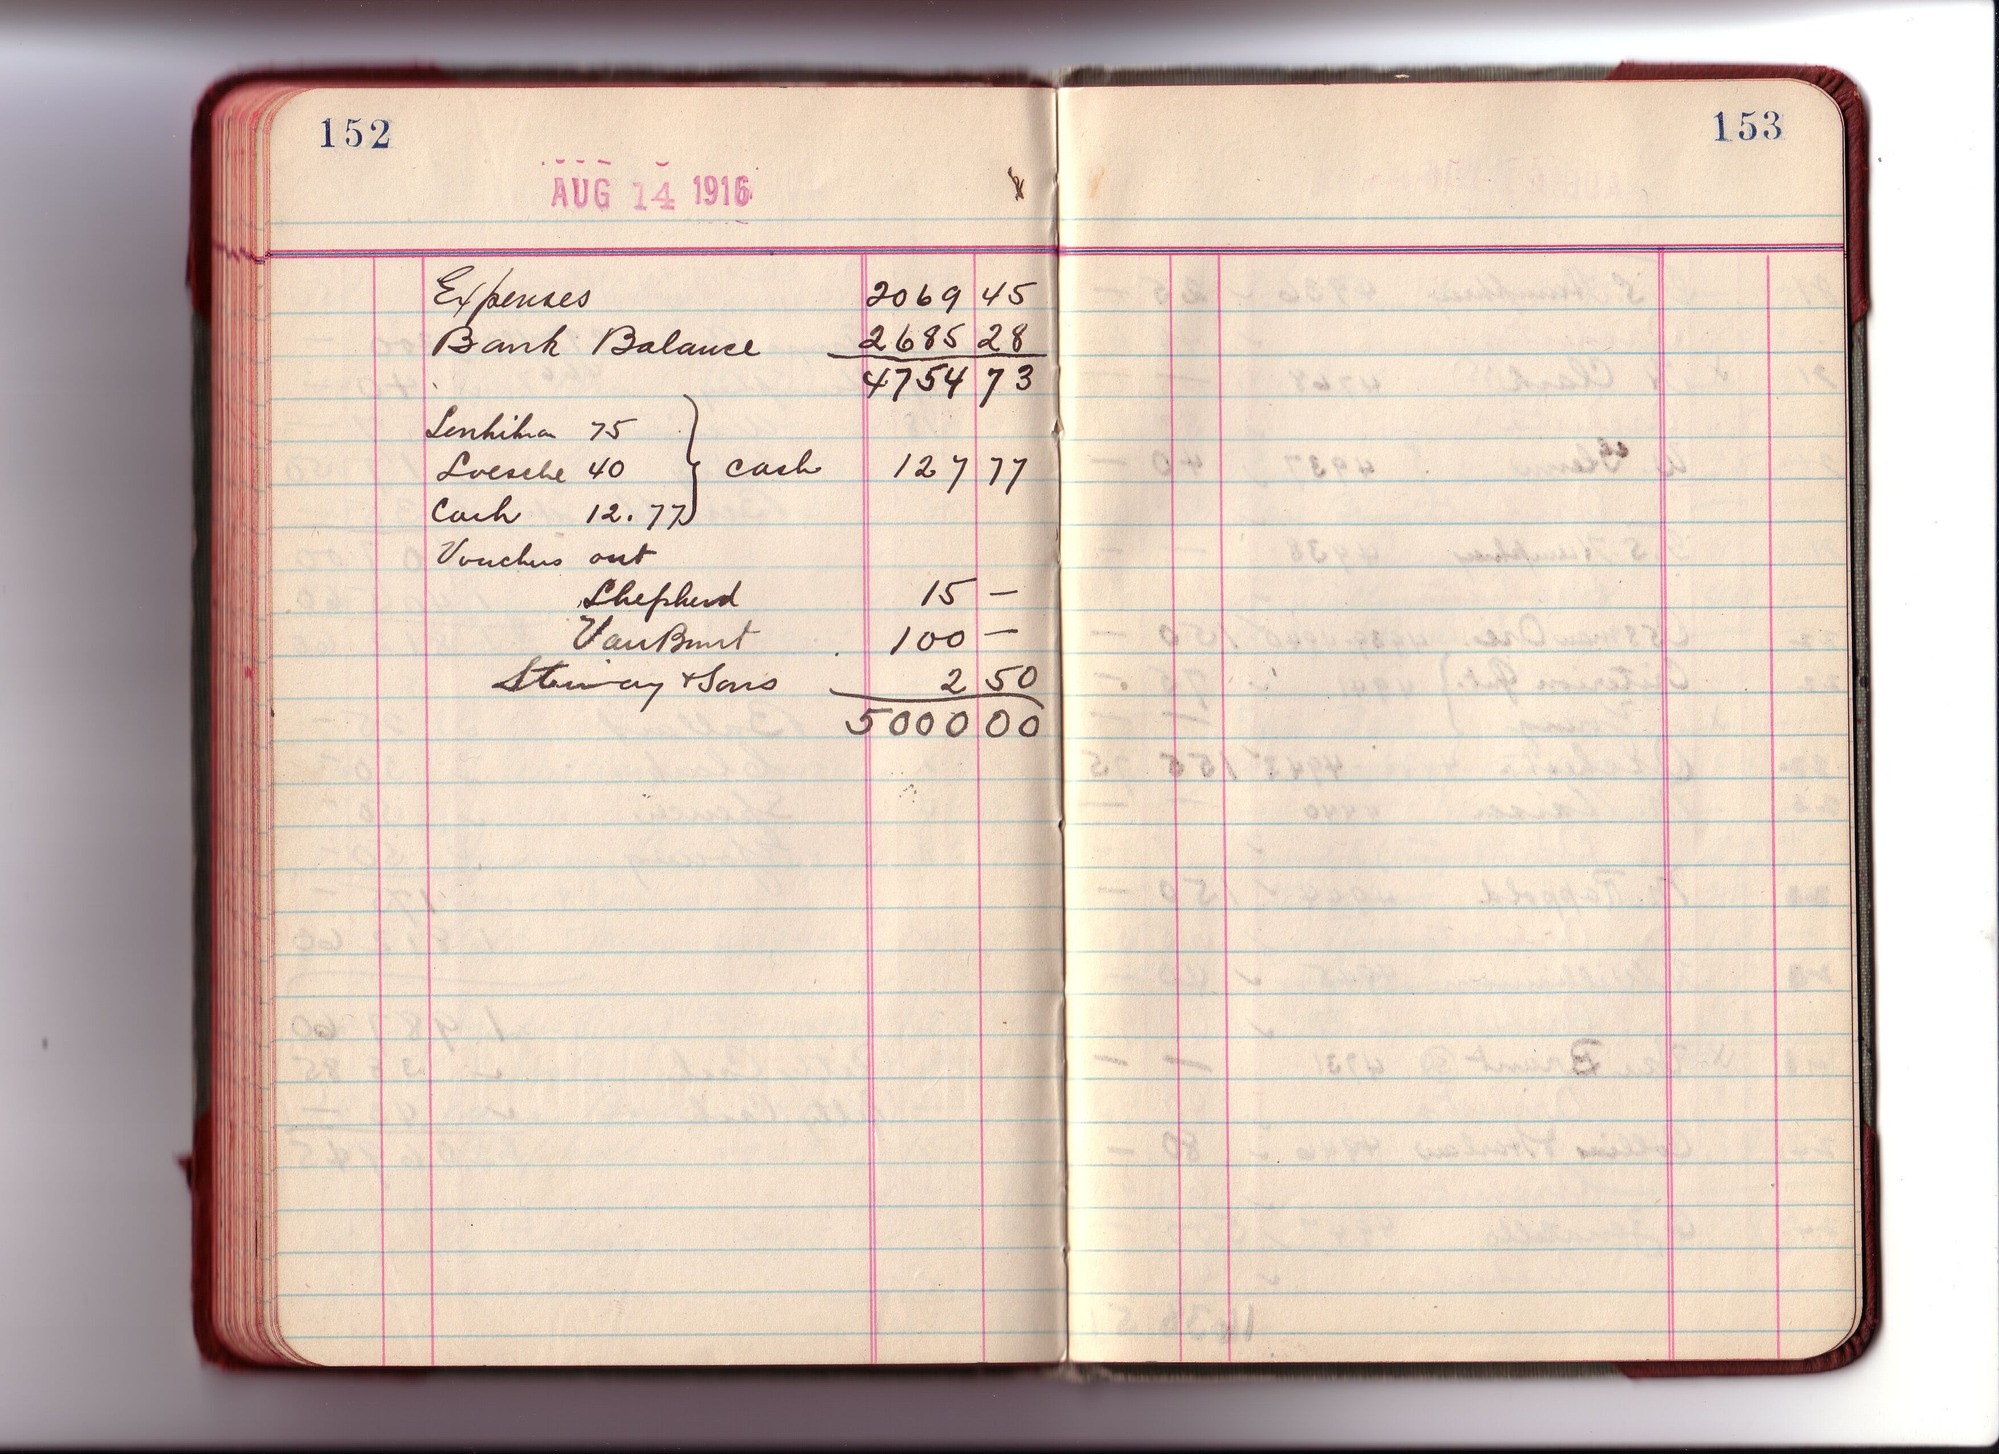 152
AUG 14 1916
Expenses 2069 45
Bank Balance 2685 28
4754 73
75
Loesche 40 cash 127 77
Cash 12.77
Vouchers out
Shepherd 15 —
VanBrunt 100 —
Steinway & Sons 2 50
5000 00
153